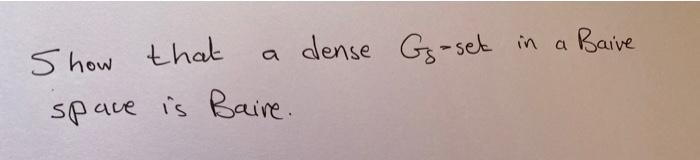 Show that a dense G_δ-set in a Baire
space is Baire.